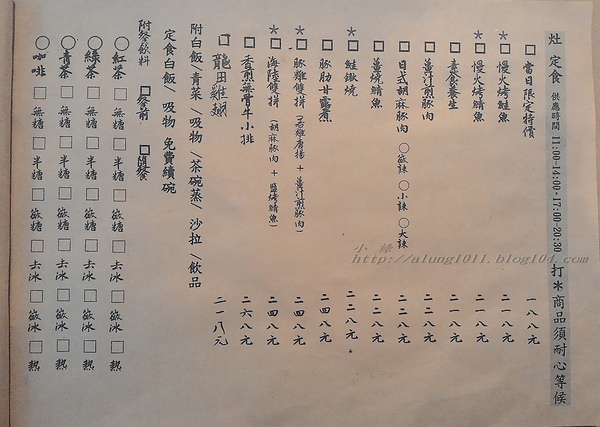 灶 定食 供應時間 11:00-14:00、17:00-20:30 打＊商品須耐心等候
□ 當日限定特價 一八八元
＊□ 慢火烤鮭魚 二一八元
＊□ 慢火烤鯖魚 二一八元
□ 素食養生 二一八元
□ 薑汁煎豚肉 二二八元
□ 日式胡麻豚肉 ○微辣 ○小辣 ○大辣 二二八元
□ 薑燒鯖魚 二二八元
＊□ 鮭鍬燒 二二八元
□ 豚肋甘露煮 二四八元
＊□ 豚雞雙拼（若雞唐揚＋薑汁煎豚肉） 二四八元
＊□ 海陸雙拼（胡麻豚肉＋鹽烤鯖魚） 二四八元
□ 香煎無骨牛小排 二六八元
□ 龍田雞翅 二一八元
附白飯\青菜\吸物\茶碗蒸\沙拉\飲品
定食白飯\吸物 免費續碗
附餐飲料 □餐前 □隨餐
○紅茶 □無糖 □半糖 □微糖 □去冰 □微冰 □熱
○綠茶 □無糖 □半糖 □微糖 □去冰 □微冰 □熱
○青茶 □無糖 □半糖 □微糖 □去冰 □微冰 □熱
○咖啡 □無糖 □半糖 □微糖 □去冰 □微冰 □熱
小綠
http://alung1011.blog104.com/